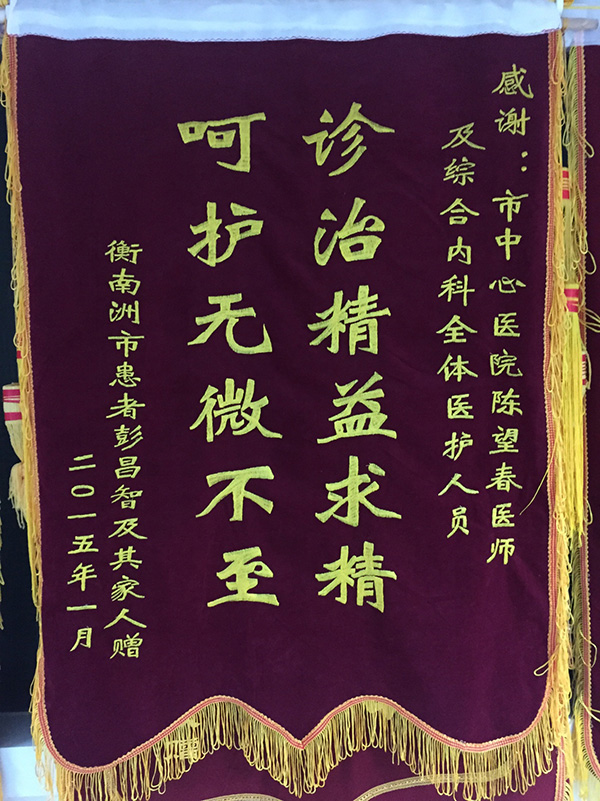 感谢：市中心医院陈望春医师
及综合内科全体医护人员
诊治精益求精
呵护无微不至
衡南洲市患者彭昌智及其家人赠
二〇一五年一月